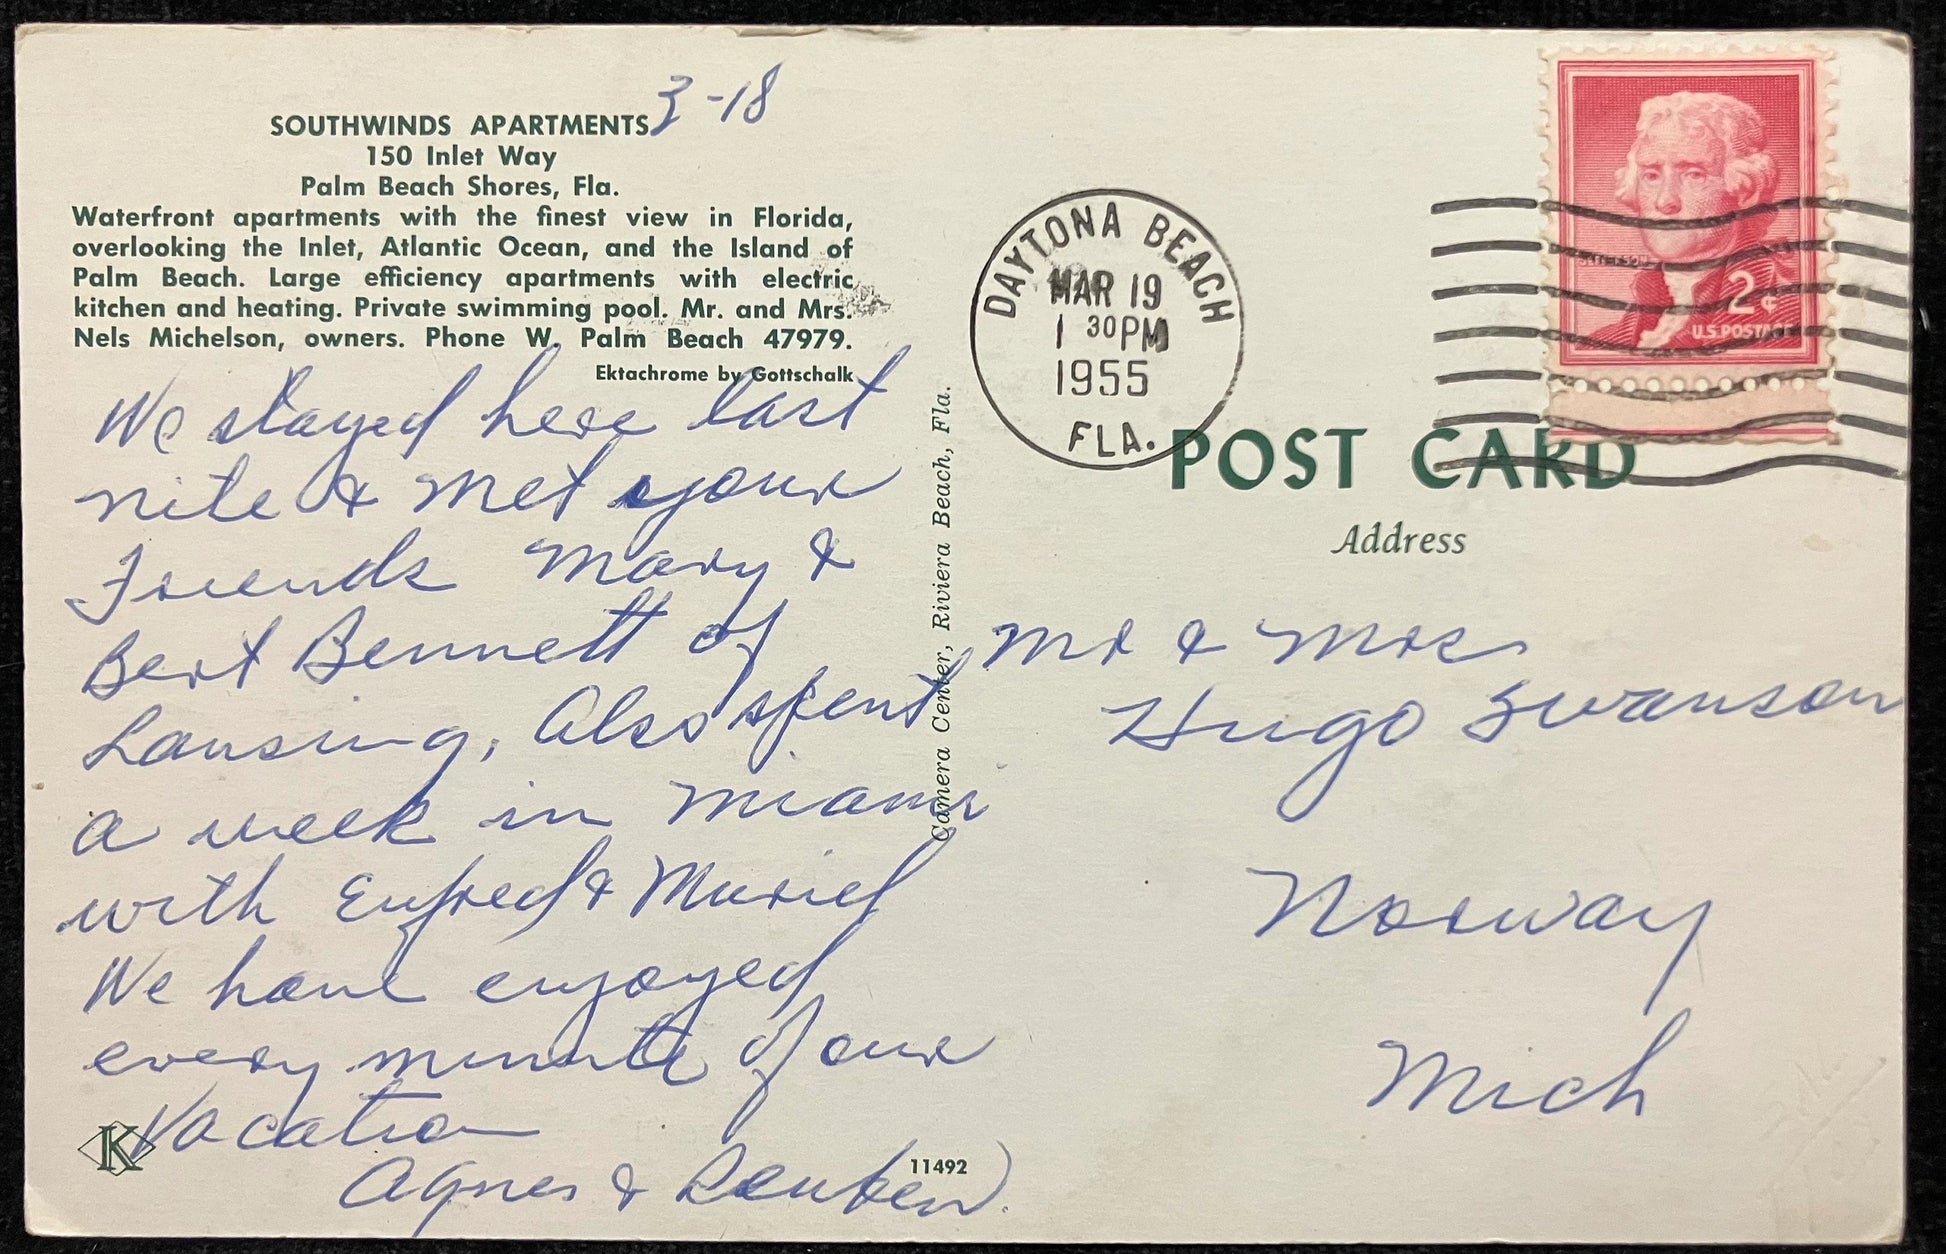 3-18
SOUTHWINDS APARTMENTS
150 Inlet Way
Palm Beach Shores, Fla.
Waterfront apartments with the finest view in Florida,
overlooking the Inlet, Atlantic Ocean, and the Island of
Palm Beach. Large efficiency apartments with electric
kitchen and heating. Private swimming pool. Mr. and Mrs.
Nels Michelson, owners. Phone W. Palm Beach 47979.
Ektachrome by Gottschalk
We stayed here last
nite & met your
Friends Mary &
Bert Bennett of
Lansing, Also spent
a week in Miami
with Enfred & Muriel
We have enjoyed
every minute of our
Vacation
Agnes & Reuben
K
11492
Camera Center, Riviera Beach, Fla.
DAYTONA BEACH
MAR 19
1 30 PM
1955
FLA.
JEFFERSON
2¢
U.S. POSTAGE
POST CARD
Address
Mr & Mrs
Hugo Swanson
Norway
Mich